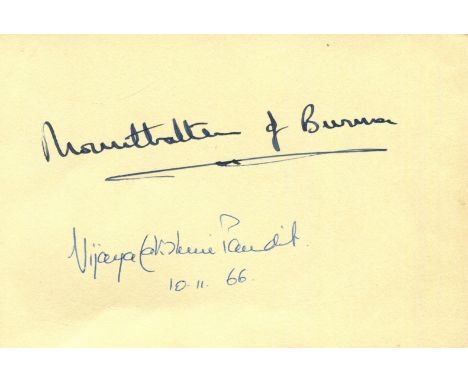 Mountbatten of Burma
Vijaya Lakshmi Pandit.
10.11.66.